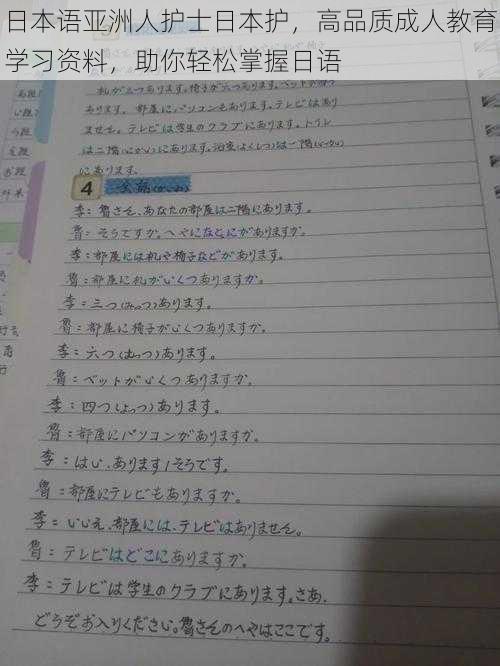 日本语亚洲人护士日本护，高品质成人教育
学习资料，助你轻松掌握日语
あります。部屋にパソコンもあります。テレビはあり
ません。テレビは学生のクラブにあります。トイレ
は二階(にかい)にあります。浴室(よくしつ)は一階(いっかい)
にあります。
4 会話(かいわ)
李：魯さん、あなたの部屋は二階にあります。
魯：そうですか。へやになにがありますか。
李：部屋には机や椅子などがあります。
魯：部屋に机がいくつありますか。
李：三つ(みっつ)あります。
魯：部屋に椅子がいくつありますか。
李：六つ(むっつ)あります。
魯：ベットがいくつありますか。
李：四つ(よっつ)あります。
魯：部屋にパソコンがありますか。
李：はい、あります！そうです。
魯：部屋にテレビもありますか。
李：いいえ、部屋には、テレビはありません。
魯：テレビはどこにありますか。
李：テレビは学生のクラブにあります。さあ、
どうぞお入りください。魯さんのへやはここです。